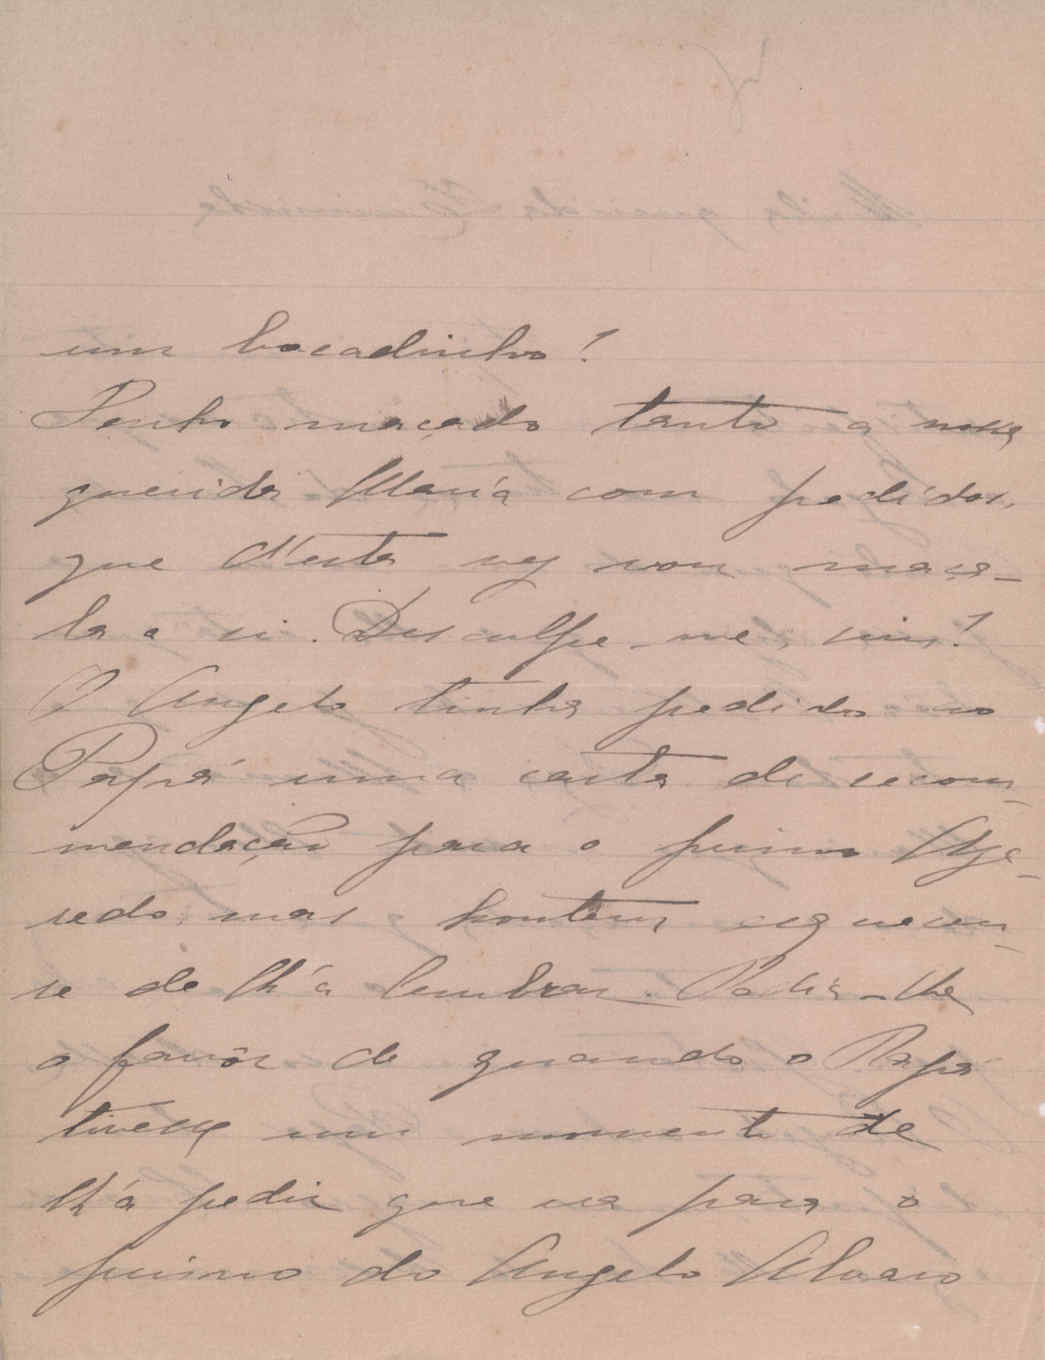 um bocadinho!
Tenho maçado tanto a nossa
querida Maria com pedidos,
que d'esta vez vou maça-
la a si. Desculpe-me, sim?
O Angelo tinha pedido ao
Papá uma carta de recom-
mendação para o primo Aze-
redo, mas hontem esqueceu-
se de lh'a lembrar. Pedia-lhe
o favôr de quando o Papá
tivesse um momento de
lh'a pedir que va para o
primo do Angelo Alvaro